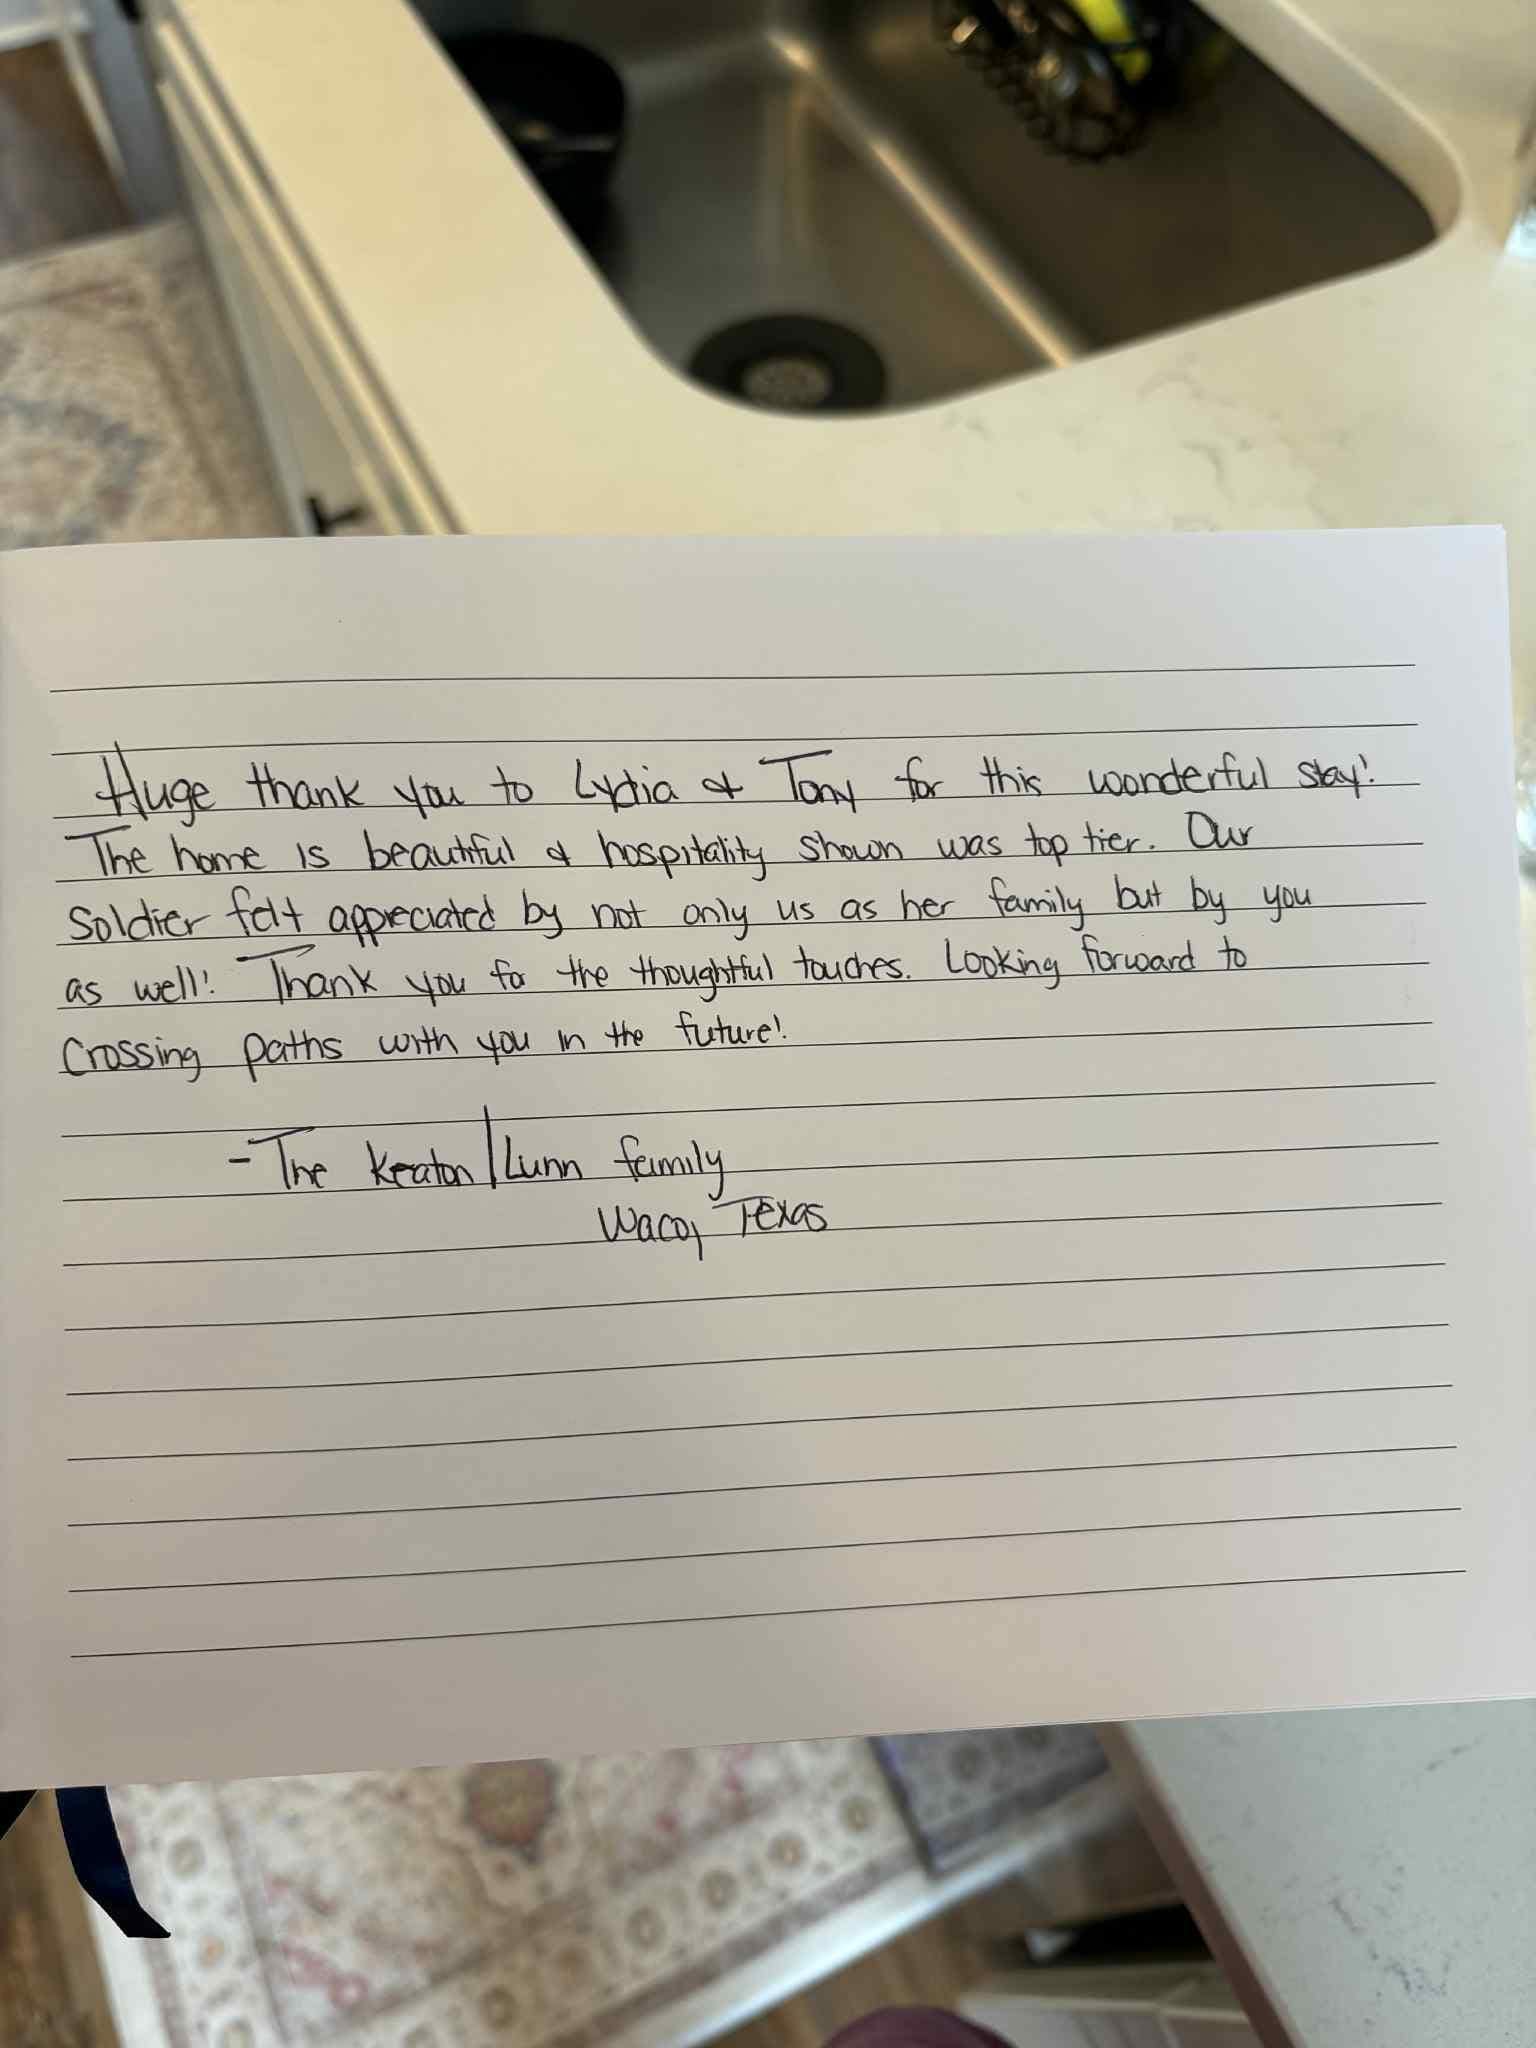 Huge thank you to Lydia & Tony for this wonderful stay!
The home is beautiful & hospitality shown was top tier. Our
Soldier felt appreciated by not only us as her family but by you
as well! Thank you for the thoughtful touches. Looking forward to
Crossing paths with you in the future!
- The Keaton/Lunn family
Waco, Texas